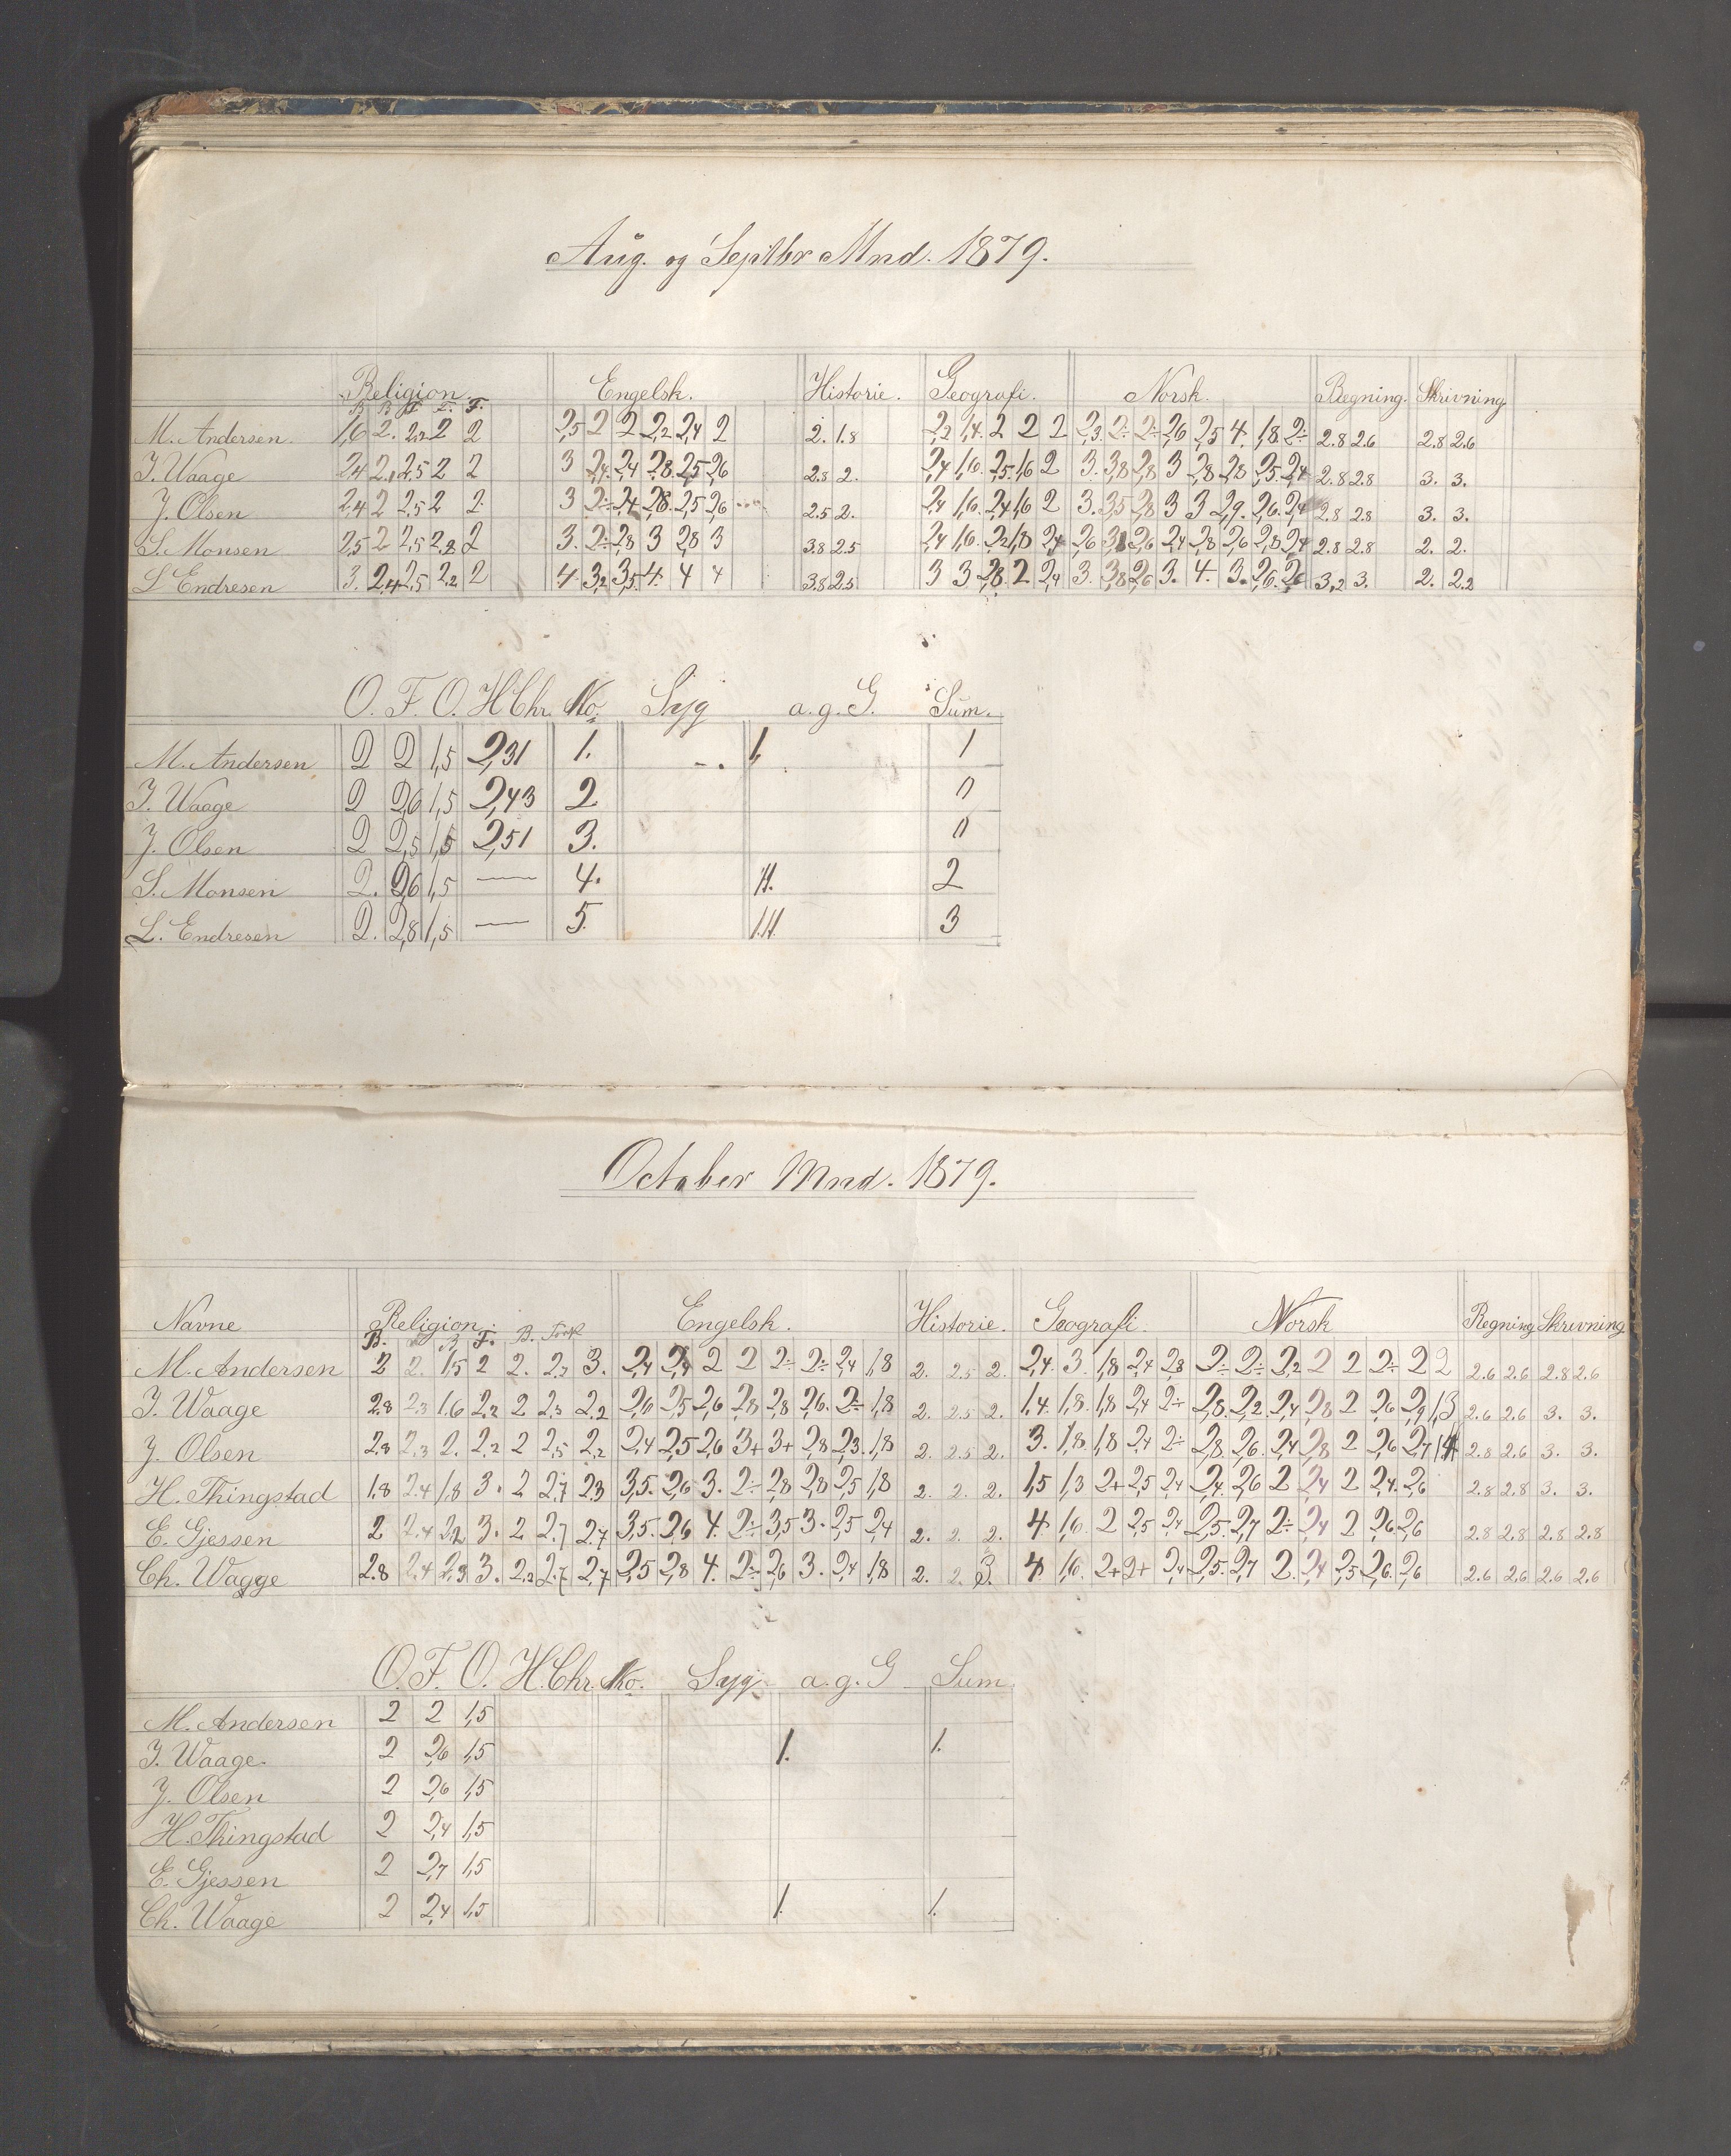 Aug. og Septbr Mnd. 1879.
Religion. Engelsk. Historie. Geografi. Norsk. Regning. Skrivning
B B F F. F.
M. Andersen. 1,6 2. 2,2 2 2 2,5 2 2 2,2 2,4 2 2. 1.8 2,2 1,4. 2 2 2 2,3. 2÷ 2÷ 2,6 2,5 4. 1,8. 2÷ 2.8 2.6 2.8 2.6
J. Waage 2,4 2,1 2,5 2 2 3 2,4. 2,4 2,8. 2,5 2,6 2.8 2. 2,4 1,6. 2,5. 1,6 2 3. 3,8 2,8 3 2,8 2,8 2,5. 2,4 2.8 2.8 3. 3.
J. Olsen 2,4 2 2,5 2 2. 3 2÷ 2,4 2,8. 2,5 2,6 2.5 2. 2,4 1,6. 2,4 1,6 2 3. 3,5 2,8 3 3 2,9. 2,6. 2,4 2.8 2.8 3. 3.
S. Monsen 2,5 2 2,5 2,8 2 3. 2÷ 2,8 3 2,8 3 3.8 2.5 2,4 1,6. 2,2 1,8 2,4 2,6 3,8 2,6 2,4 2,8 2,6 2,8 2,4 2.8 2.8 2. 2.
L Endresen 3. 2,4 2,5 2,2 2 4. 3,2 3,5. 4. 4 4 3.8 2.5 3 3 2,8. 2 2,4 3. 3,8 2,6 3. 4. 3. 2,6. 2,6 3,2 3. 2. 2.2
O. F. O. H Chr. No. Syg a. g. G. Sum.
M. Andersen 2 2 1,5 2,31 1. 1. 1
J. Waage 2 2,6 1,5 2,43 2 0
J. Olsen 2 2,5 1,5 2,51 3. 0
S. Monsen 2. 2,6 1,5 — 4. 11. 2
L. Endresen 2. 2,8 1,5 — 5. 1.11. 3
October Mnd. 1879.
Navne Religion. Engelsk. Historie. Geografi. Norsk Regning Skrivning
B. B F. B.
M. Andersen 2 2. 1,5 2 2. 2,7 3. 2,4 2,4 2 2 2÷ 2÷ 2,4 1,8 2. 2.5 2. 2,4. 3. 1,8 2,4 2,8 2÷ 2÷ 2,2 2 2 2÷ 2 2 2.6 2.6 2.8 2.6
J. Waage 2.8 2.3 1.6 2,2 2 2,5 2,2 2,6 2,5 2,6 2,8 2,8 2,6. 2÷ 1,8 2. 2.5 2. 1,4. 1,8. 1,8 2,4 2÷ 2,8. 2,2. 2,4 2,8 2 2,6 2,9 1,3 2.6 2.6 3. 3.
J. Olsen 2.8 2.3 2. 2,2 2 2,5 2,2 2,4 2,5 2,6 3+ 3+ 2,8 2,3. 1,8 2. 2.5 2. 3. 1,8. 1,8 2,4 2÷ 2,8 2,6. 2,4 2,8 2 2,6 2,7 1,4 2.8 2.6 3. 3.
H. Thingstad 1.8 2.4 1,8 3. 2 2,7 2,3 3,5. 2,6 3. 2÷ 2,8 2,8 2,5 1,8 2. 2. 2. 1,5 1,3 2+ 2,5 2,4 2,4. 2,6 2 2,4 2 2,4. 2,6 2.8 2.8 3. 3.
E. Gjessen 2 2.4 2,2 3. 2 2,7 2,7 3,5. 2,6 4. 2÷ 3,5 3. 2,5 2,4 2. 2. 2. 4. 1,6. 2 2,5 2,4 2,5. 2,7 2÷ 2,4 2 2,6 2,6 2.8 2.8 2.8 2.8
Ch. Waage 2.8 2.4 2,3 3. 2,2 2,7 2,7 2,5 2,8 4. 2÷ 2,6 3. 2,4 1,8 2. 2. 3. 4. 1,6. 2+ 2+ 2,4 2,5. 2,7 2. 2,4 2,5 2,6. 2,6 2.6 2.6 2.6 2.6
O. F. O. H.Chr. No. Syg. a. g. G Sum.
M. Andersen 2 2 1,5
J. Waage. 2 2,6 1,5 1. 1.
J. Olsen 2 2,6 1,5
H. Thingstad 2 2,4 1,5
E. Gjessen 2 2,7 1,5
Ch. Waage 2 2,4 1,5 1. 1.